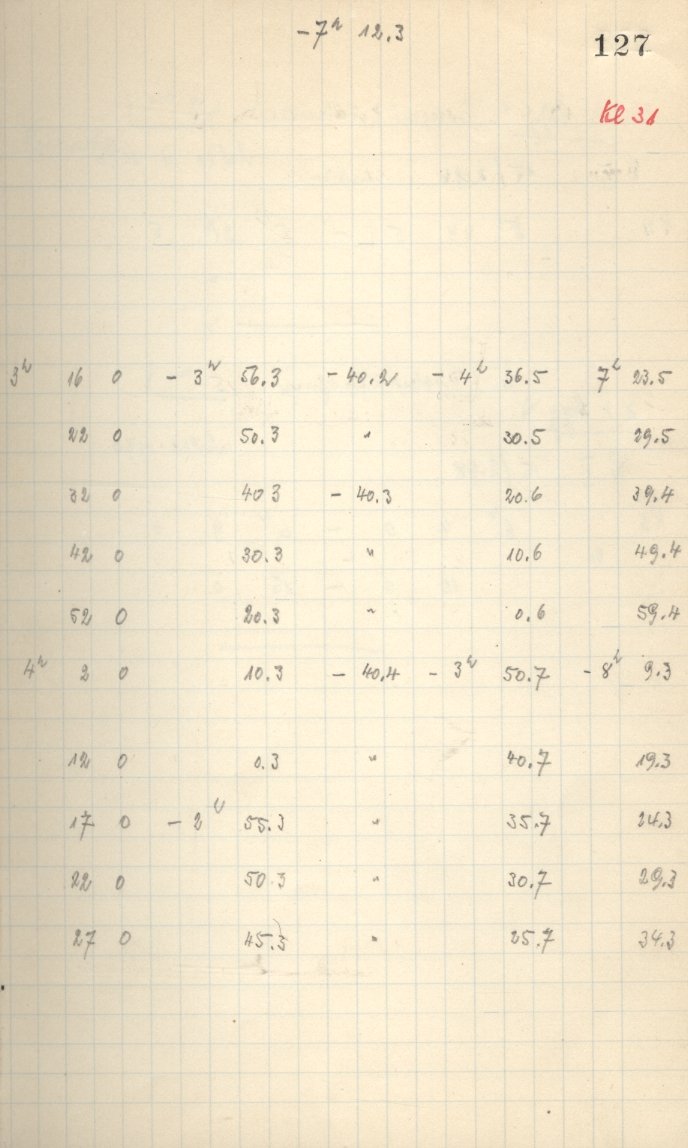 -7h 12.3
127
Kl 31
3h 16 0 - 3h 56.3 - 40.2 - 4h 36.5 7h 23.5
22 0 50.3 " 30.5 29.5
32 0 40 3 - 40.3 20.6 39.4
42 0 30.3 " 10.6 49.4
52 0 20.3 " 0.6 59.4
4h 2 0 10.3 - 40.4 - 3h 50.7 - 8h 9.3
12 0 0.3 " 40.7 19.3
17 0 - 2h 55.3 " 35.7 24.3
22 0 50 3 " 30.7 29.3
27 0 45.3 " 25.7 34.3